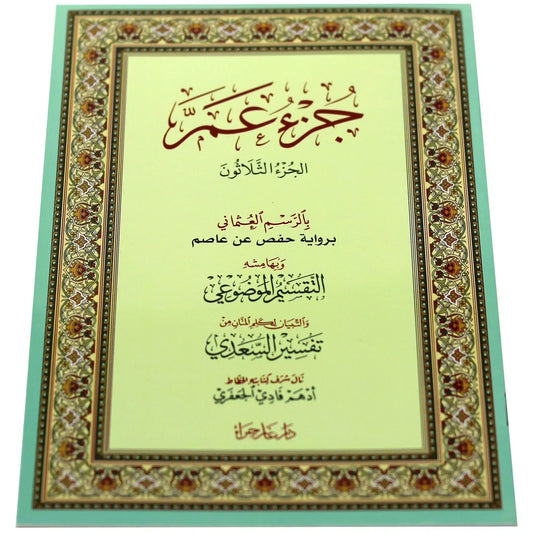 جُزْءُ عَمَّ
الجُزْءُ الثَّلَاثُونَ
بِالرَّسْمِ العُثْمَانِي
برواية حفص عن عاصم
وَبهَامِشِهِ
التَّقْسِيْمُ المَوْضُوعِي
وَالتِّبيَان لِكَلِم المنَّان مِن
تَفْسِيْر السَّعْدِي
نَالَ شَرَفَ كِتَابَتِهِ الخَطَّاط
أَدْهَم فَادِي الجَعْفَرِي
دار غار حراء